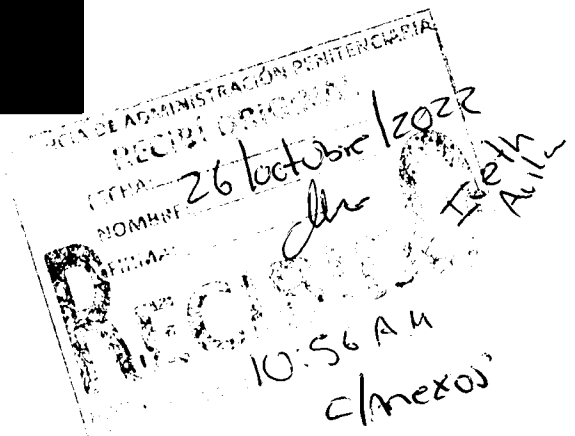 DE ADMINISTRACIÓN PENITENCIARIA
RECIBÍ ORIGINAL
FECHA: 26/octubre/2022
NOMBRE:
FIRMA:
RECIBIDO
10:56 AM
c/Anexos